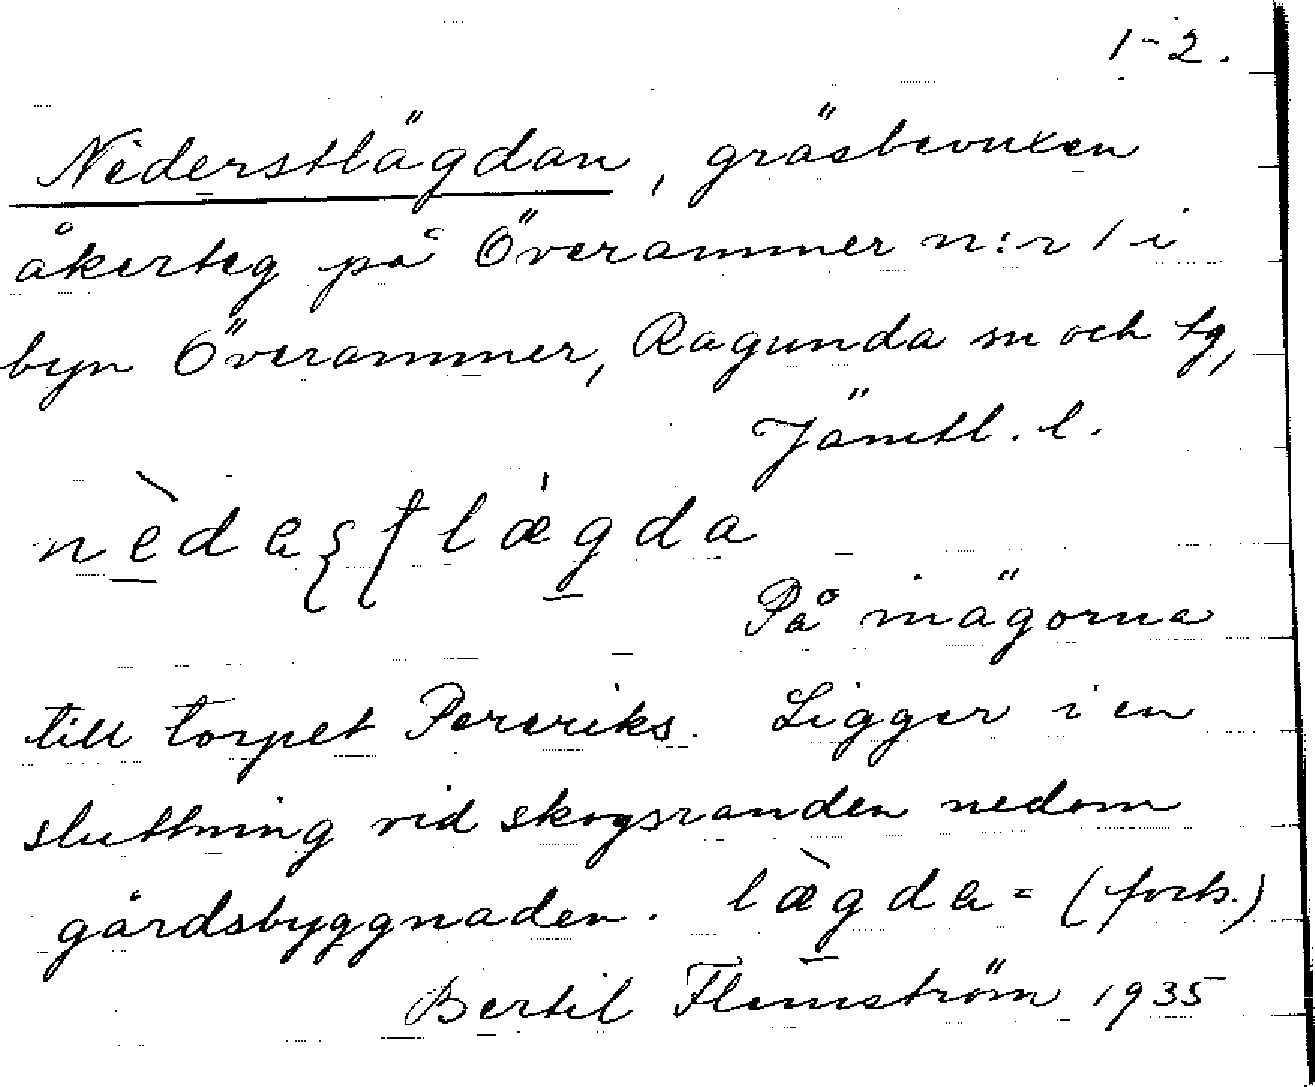 1-2.
Niderstlägdan, gräsbevuxen
åkerteg på Överammer n:r 1 i
byn Överammer, Ragunda sn och tg,
Jämtl. l.
På inägorna
till torpet Pereriks. Ligger i en
sluttning vid skogsranden nedom
gårdsbyggnaden. lægda = (forts.)
Bertil Flemström 1935